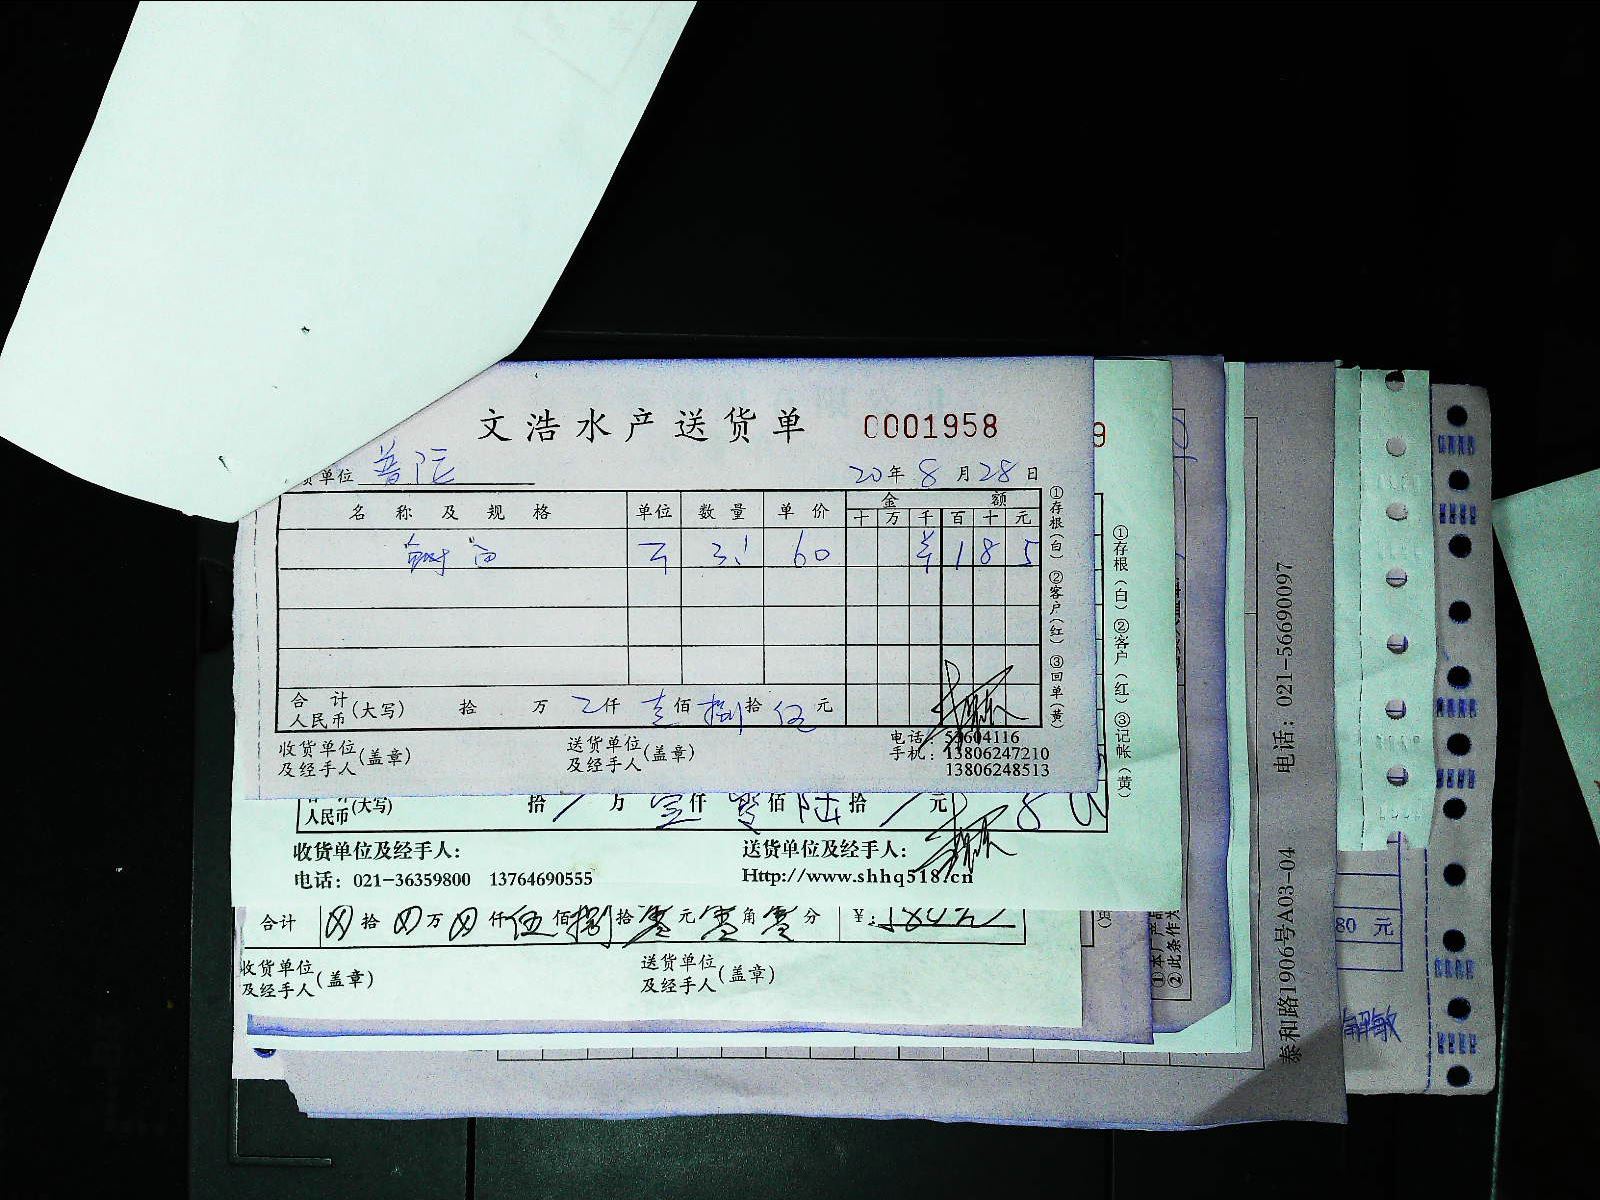 文浩水产送货单 0001958
货单位 普陀 20年8月28日
名称及规格 单位 数量 单价 金额
十 万 千 百 十 元
3.1 60 185
合计
人民币(大写) 拾 万 仟 壹佰 捌拾 伍元
收货单位
及经手人(盖章) 送货单位
及经手人(盖章)
电话:55604116
手机:13806247210
13806248513
①存根(白) ②客户(红) ③回单(黄)
9
①存根(白) ②客户(红) ③记帐(黄)
人民币(大写) 拾 万 仟 佰 陆拾 元
收货单位及经手人: 送货单位及经手人:
电话: 021-36359800 13764690555 Http://www.shhq518.cn
合计 拾 万 仟伍佰捌拾零元零角零分 ¥:580元
收货单位
及经手人(盖章) 送货单位
及经手人(盖章)
①本厂产品
②此条作为
泰和路1906号A03-04 电话: 021-56690097
80 元